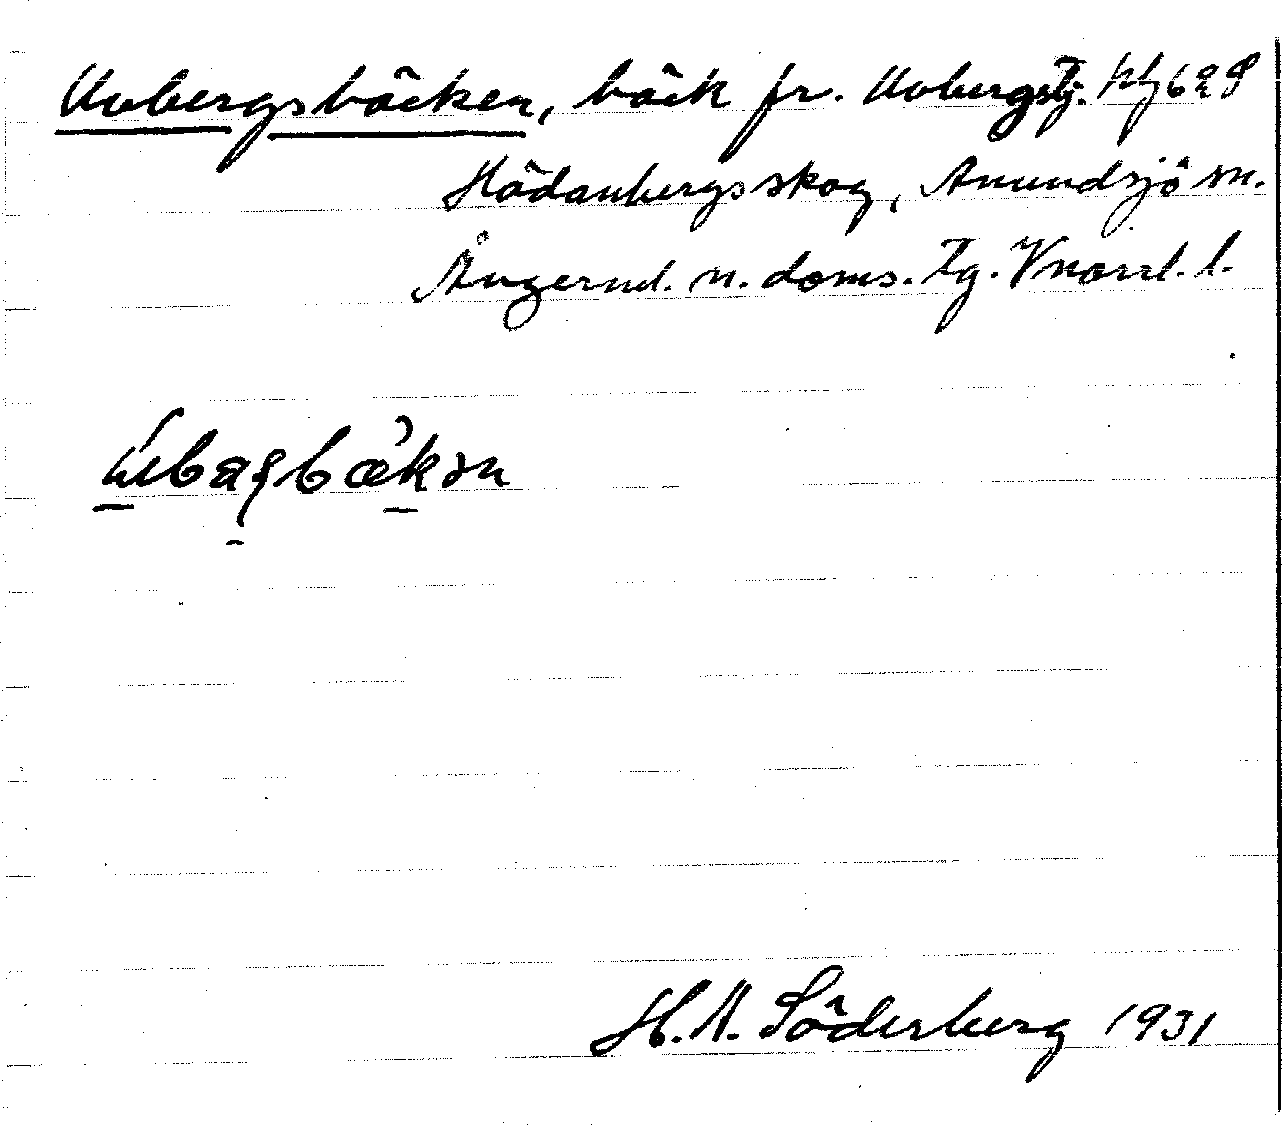 Uvbergsbäcken, bäck fr. Uvbergstj.
Hädanbergsskog, Anundsjö sn.
Ångerml. n. doms. tg. Vnorrl. l.
H. A. Söderberg 1931